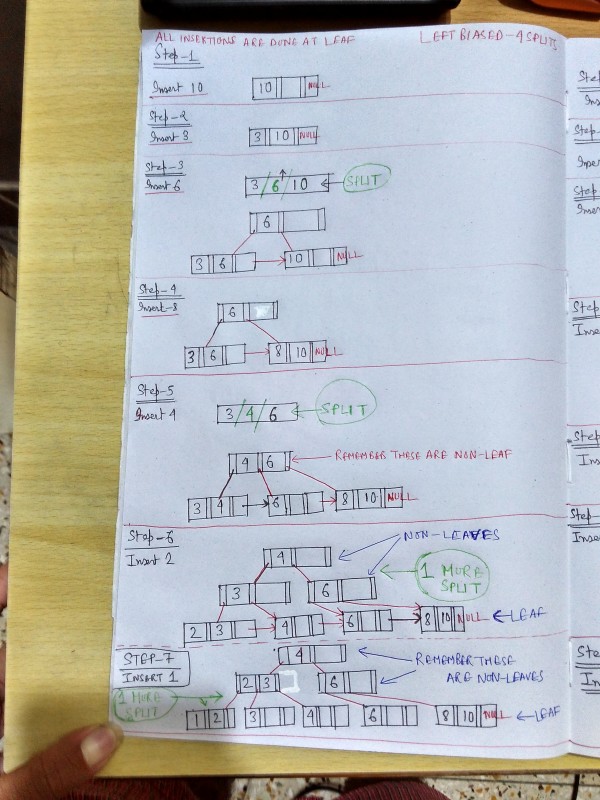 ALL INSERTIONS ARE DONE AT LEAF LEFT BIASED - 4 SPLITS
Step-1
Insert 10 10 NULL
Step-2
Insert 3 3 10 NULL
Step-3
Insert 6 3/6/10 SPLIT
6
3 6 10 NULL
Step-4
Insert-8 6
3 6 8 10 NULL
Step-5
Insert 4 3/4/6 SPLIT
4 6 REMEMBER THESE ARE NON-LEAF
3 4 6 8 10 NULL
Step-6 NON-LEAVES
Insert 2 4
1 MORE
SPLIT
3 6
2 3 4 6 8 10 NULL LEAF
STEP-7 4 REMEMBER THESE
INSERT 1 ARE NON-LEAVES
2 3 6
1 MORE
SPLIT
1 2 3 4 6 8 10 NULL LEAF
Step
Ins
Step-
Inser
Step-
Inser
Step-
Inse
Step-
Ins
Step-
In
Ste
In